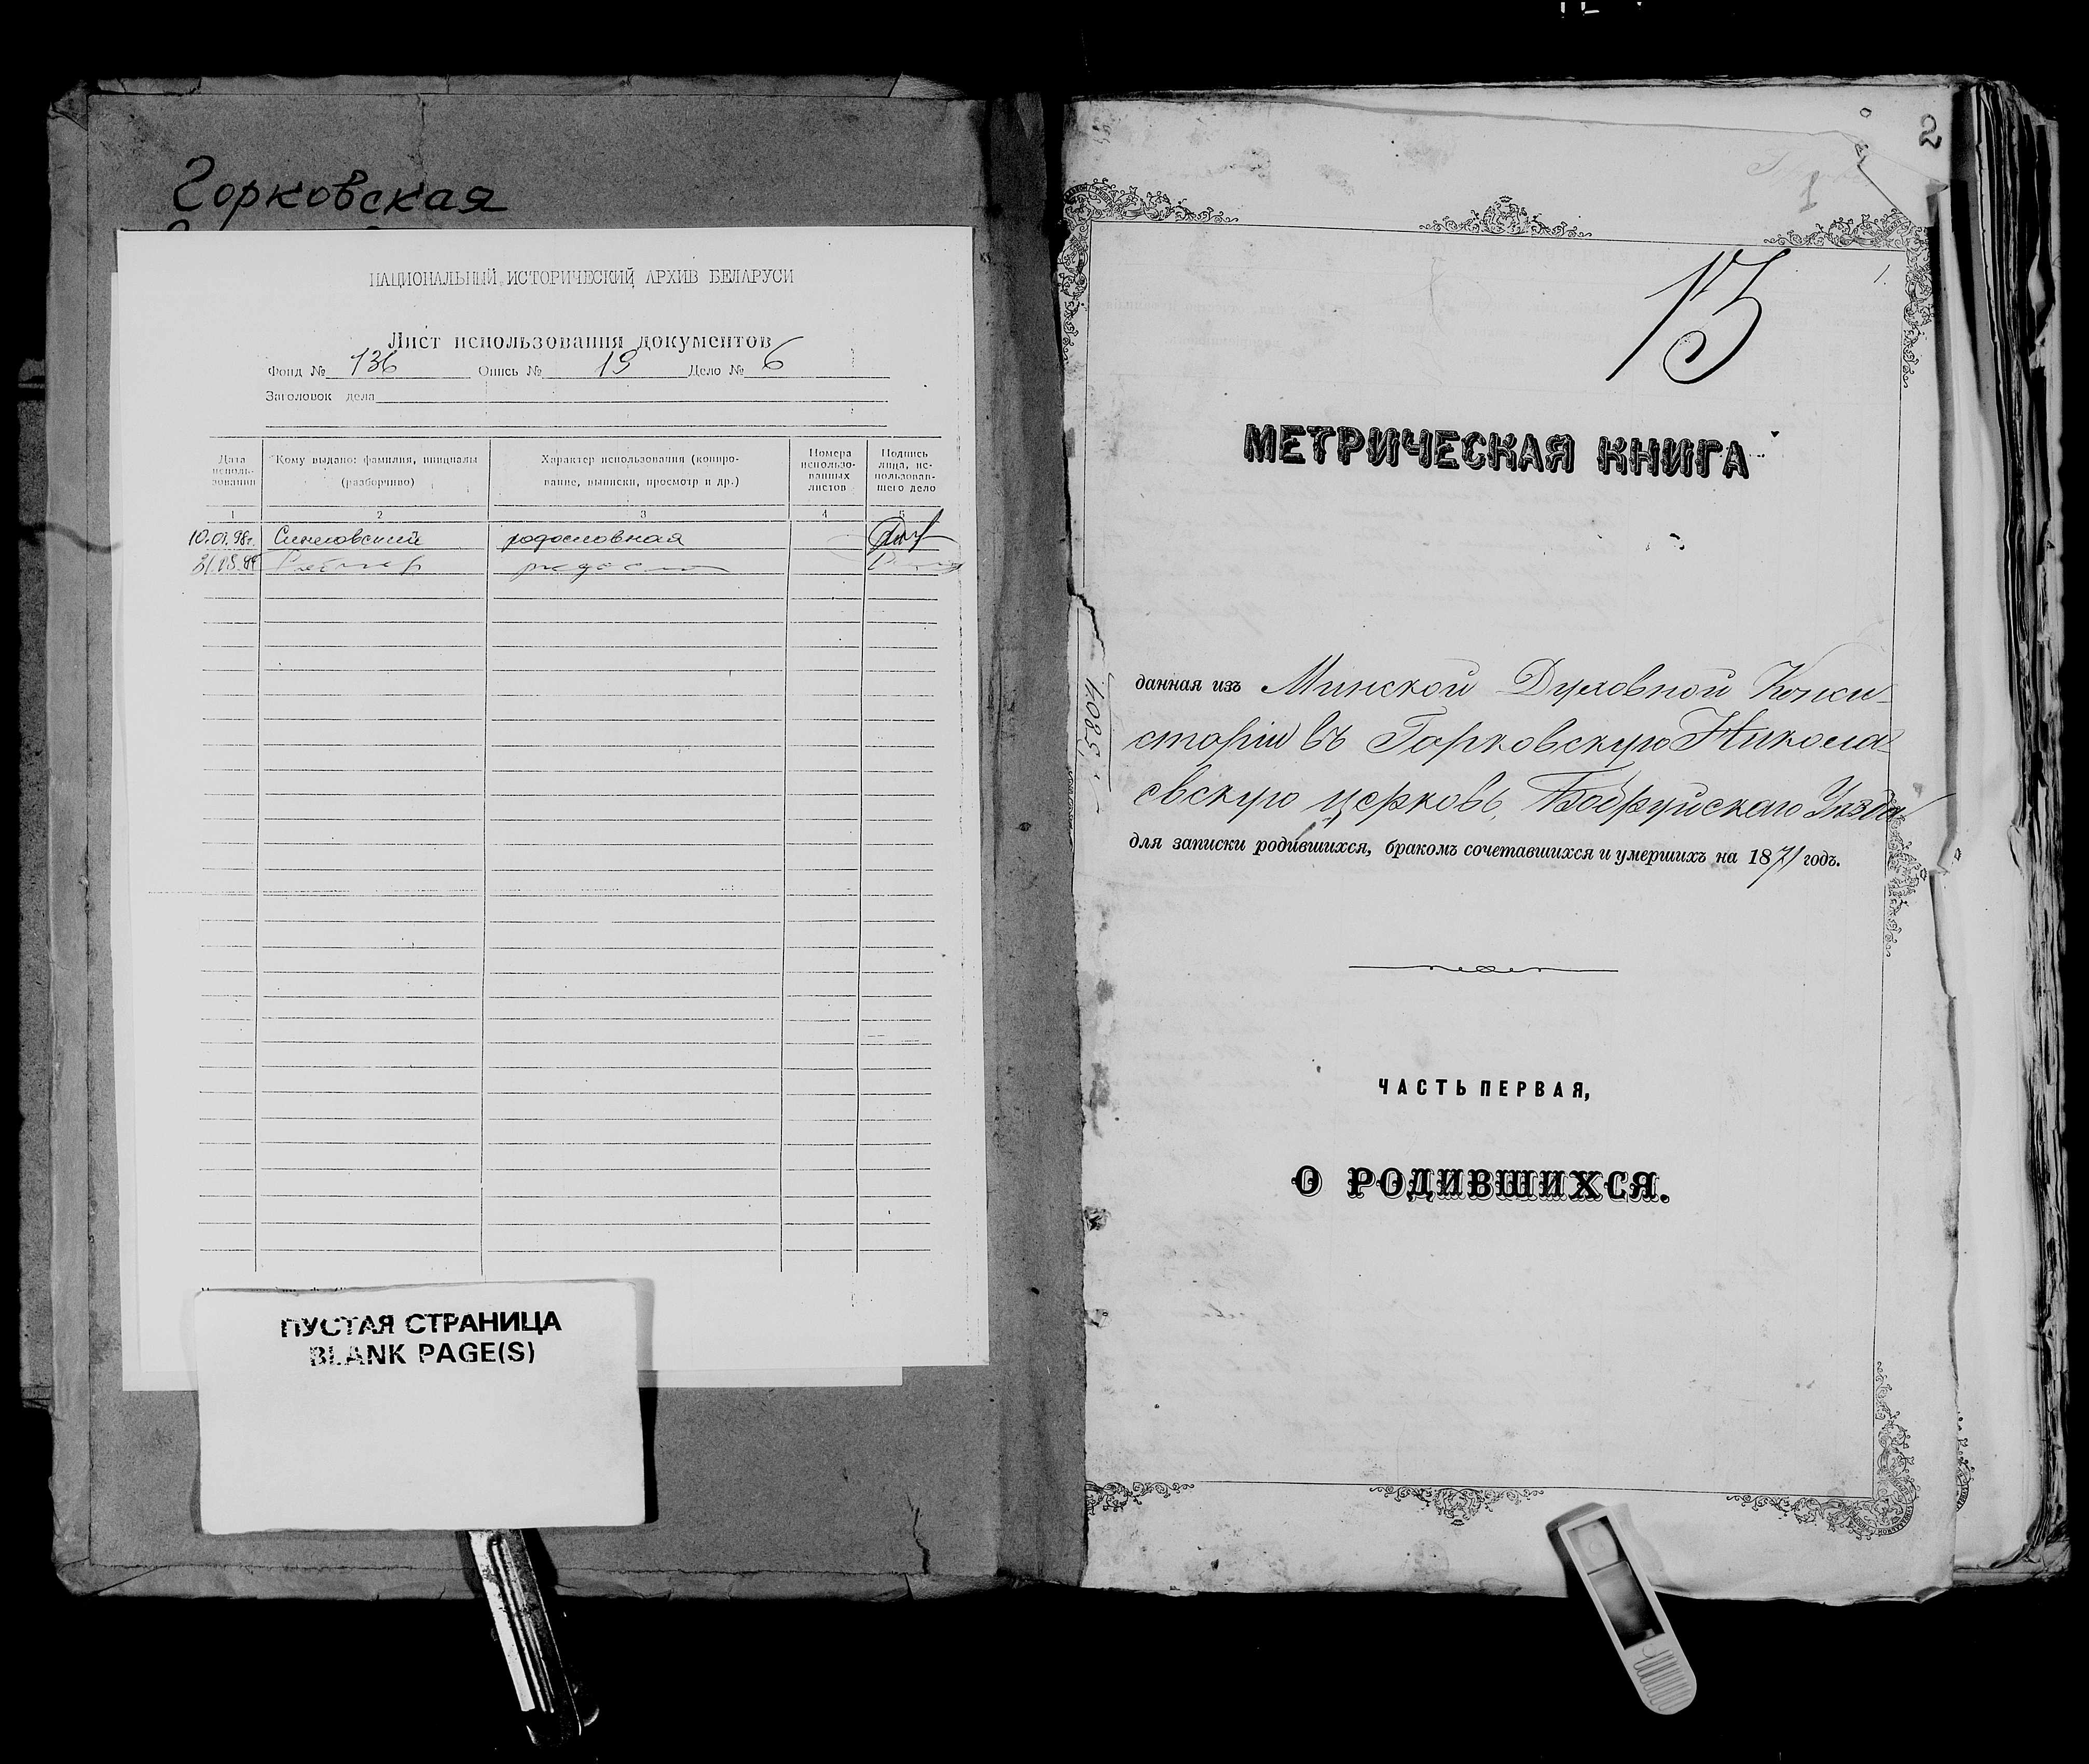 Горковская
НАЦИОНАЛЬНЫЙ ИСТОРИЧЕСКИЙ АРХИВ БЕЛАРУСИ
Лист использования документов
Фонд № 136 Опись № 19 Дело № 6
Заголовок дела
Дата исполь-зования
Кому выдано: фамилия, инициалы (разборчиво)
Характер использования (копиро-вание, выписки, просмотр и др.)
Номера использо-ванных листов
Подпись лица, ис-пользовав-шего дело
1 2 3 4 5
10.01.98г. родословная
ПУСТАЯ СТРАНИЦА
BLANK PAGE(S)
2
1
1.
13
МЕТРИЧЕСКАЯ КНИГА
данная изъ Минской Духовной Конси-
сторіи въ Горковскую Никола-
евскую церковь, Бобруйскаго Уѣзда
для записки родившихся, бракомъ сочетавшихся и умершихъ на 1871 годъ.
4085
ЧАСТЬ ПЕРВАЯ,
О РОДИВШИХСЯ.